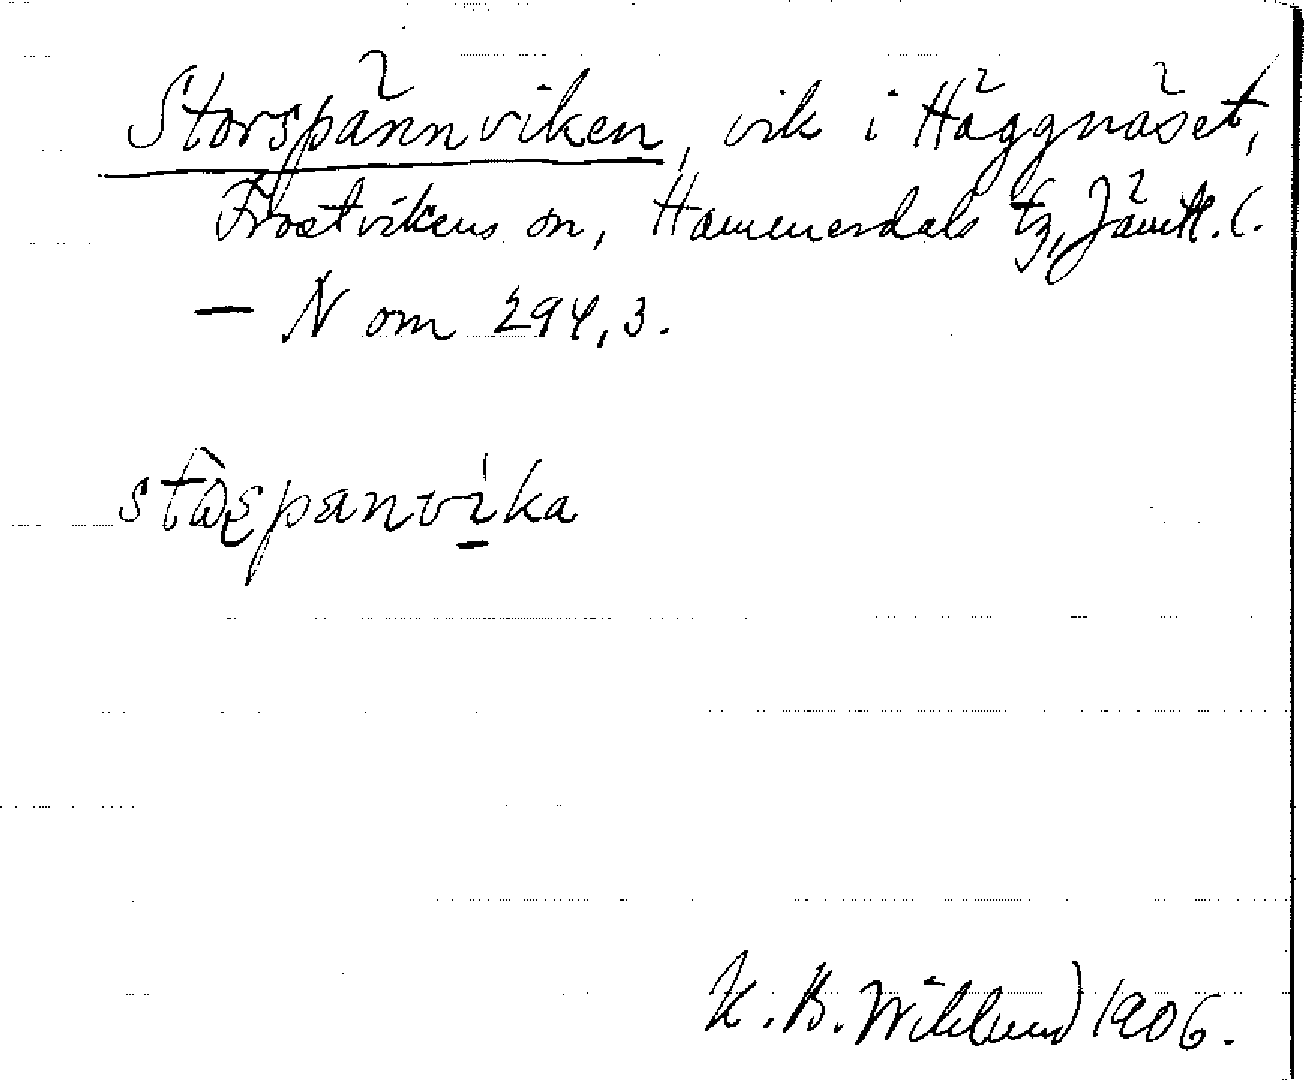 Storspännviken, vik i Häggnäset,
Frostvikens sn, Hammerdals tg, Jämtl. l.
— N om 294,3.
stɷ̀ʂpanvika
K. B. Wiklund 1906.